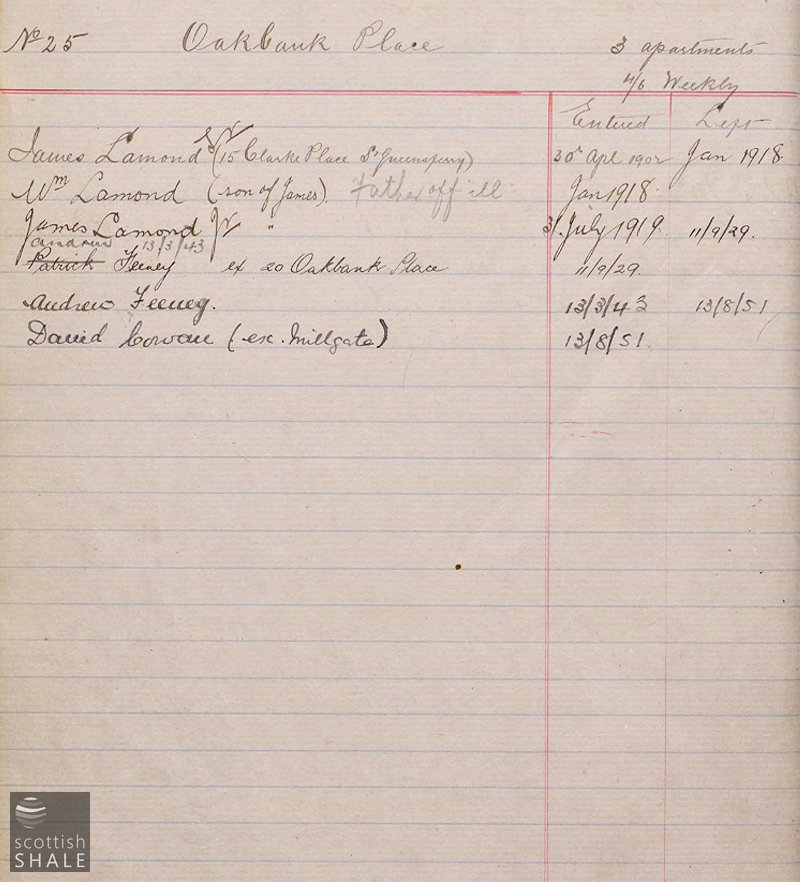 No 25 Oakbank Place 3 apartments
4/6 Weekly
Entered Left
James Lamond Sr (15 Clarke Place Sth Queensferry) 30th Apl 1902 Jan 1918
Wm Lamond (son of James) Father off ill Jan 1918
James Lamond Jr " 31 July 1919 11/9/29.
Andrew 13/3/43
Patrick Feeney ex 20 Oakbank Place 11/9/29
Andrew Feeney. 13/3/43 13/8/51
David Cowan (ex. Millgate) 13/8/51.
scottish
SHALE